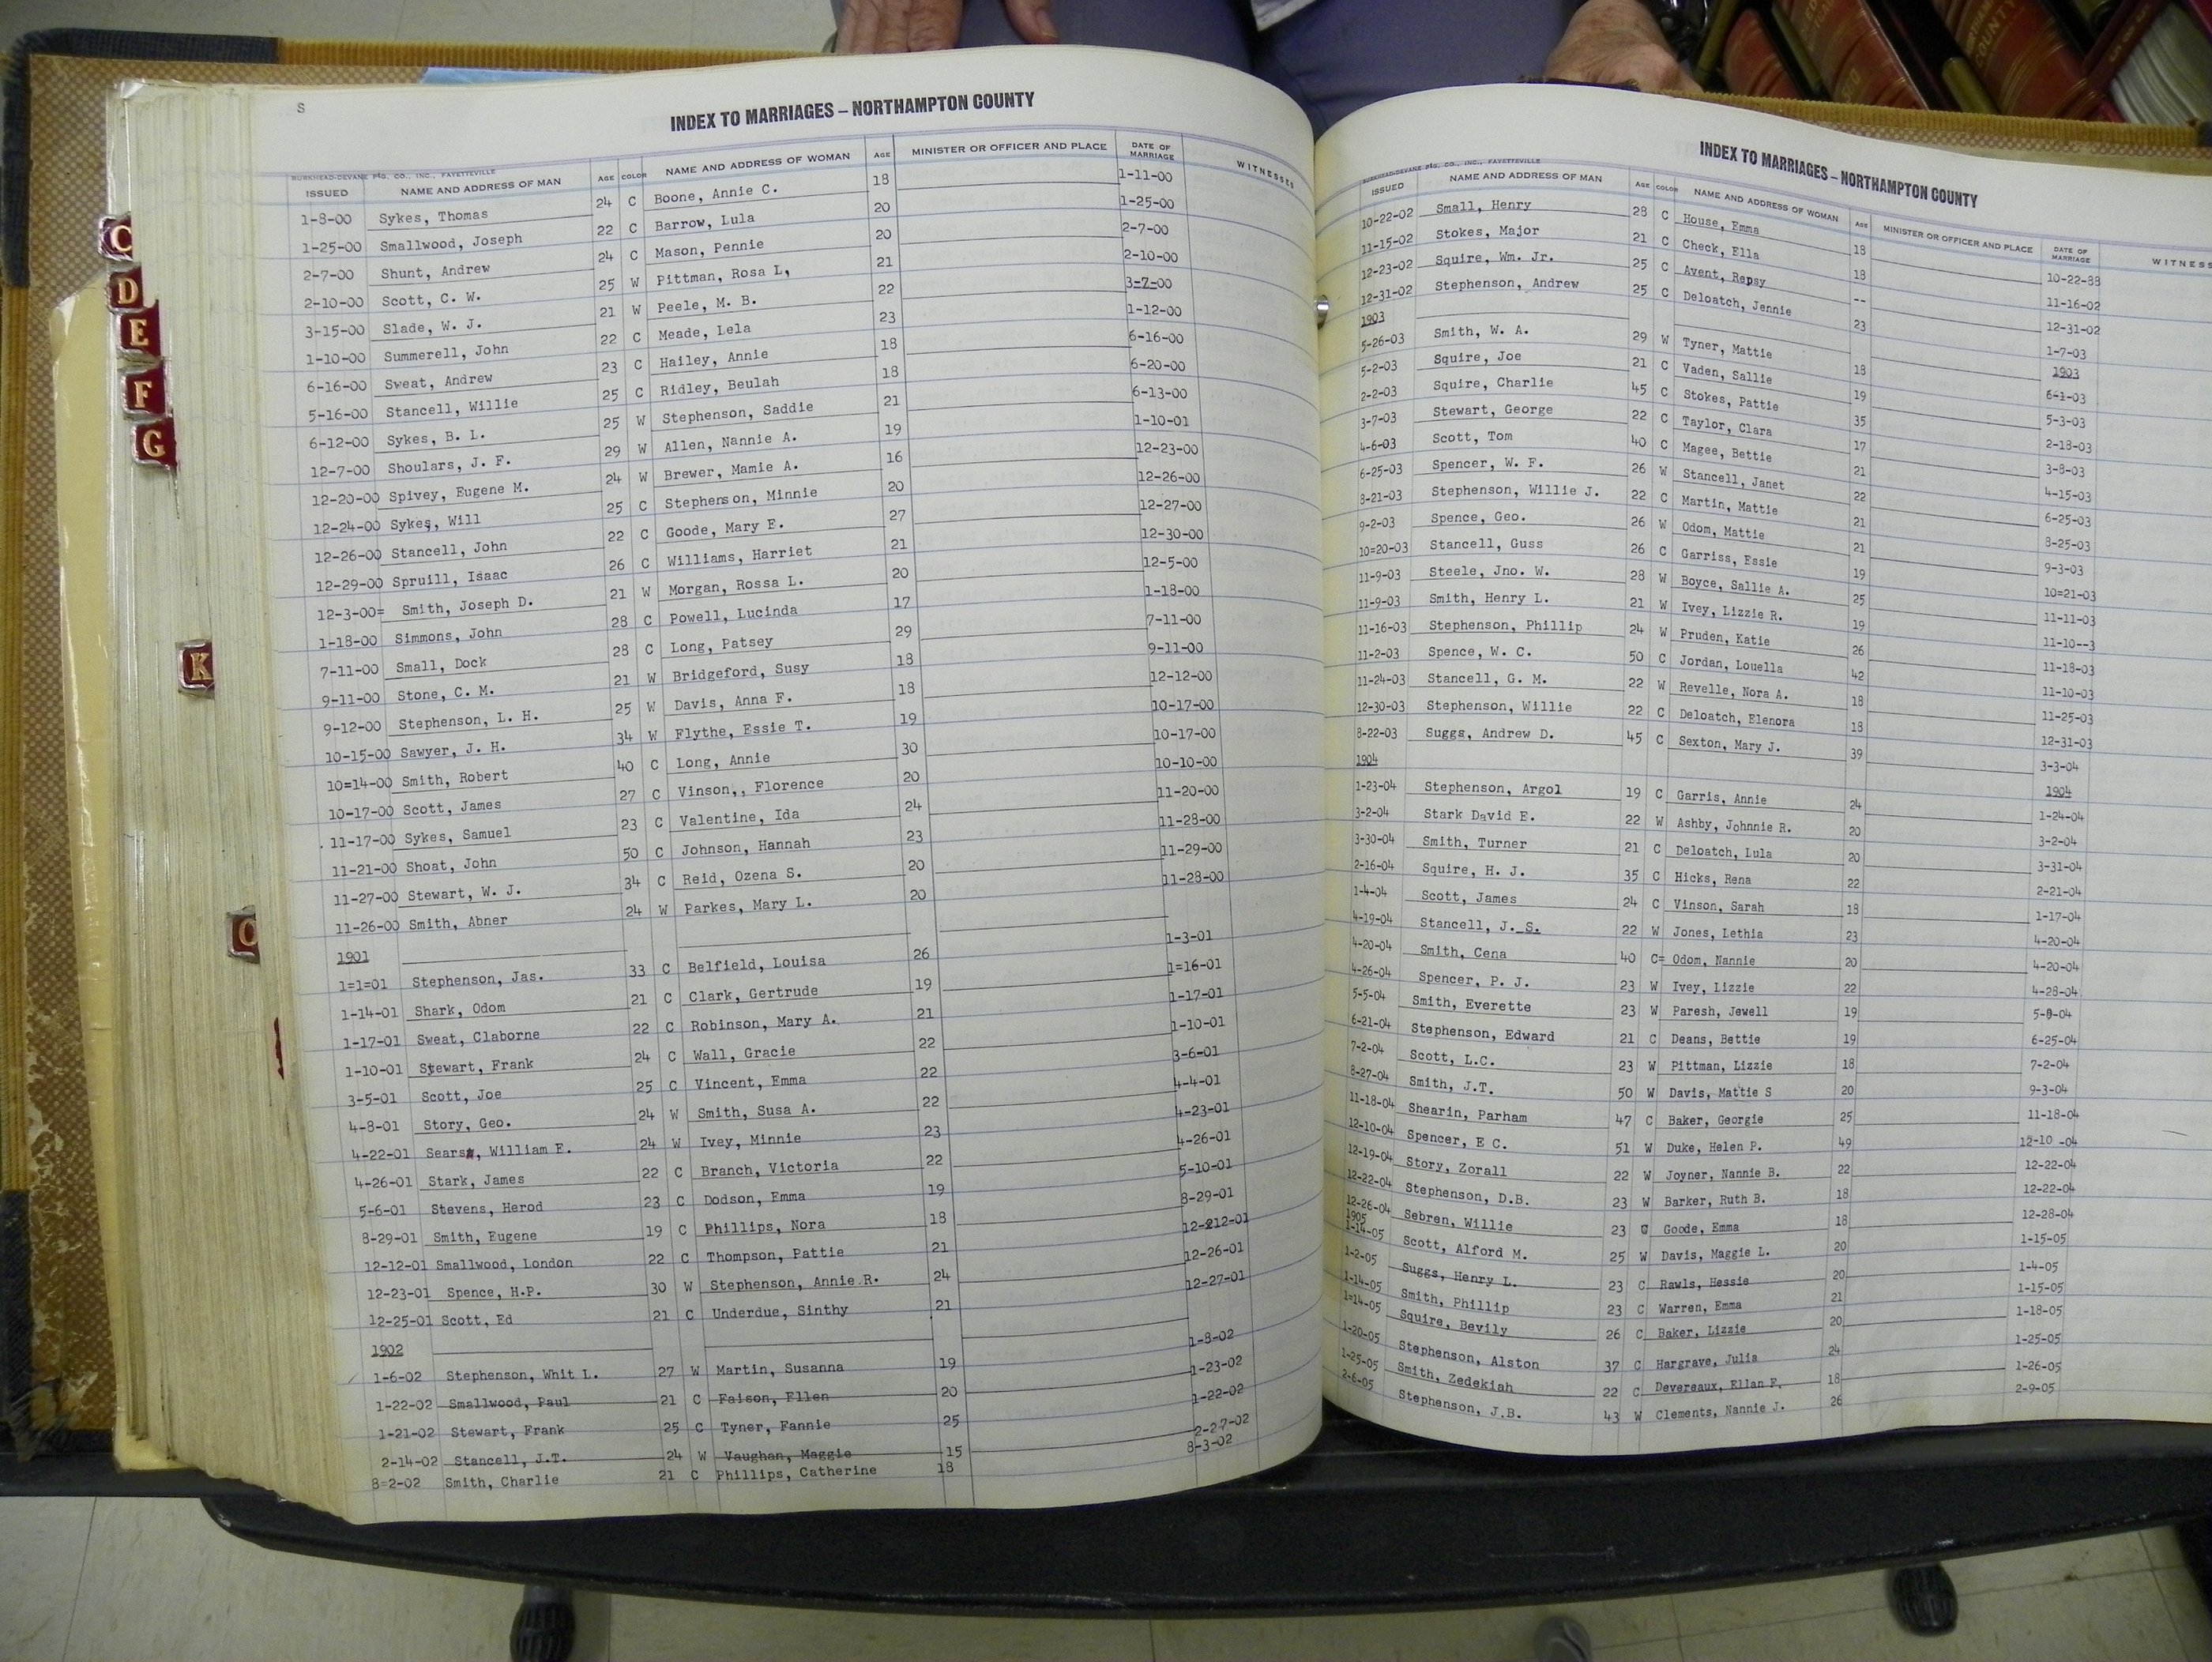 S
INDEX TO MARRIAGES – NORTHAMPTON COUNTY
BURKHEAD-DEVANE P'TG. CO., INC., FAYETTEVILLE
ISSUED NAME AND ADDRESS OF MAN AGE COLOR NAME AND ADDRESS OF WOMAN AGE MINISTER OR OFFICER AND PLACE DATE OF MARRIAGE WITNESSES
1-8-00 Sykes, Thomas 24 C Boone, Annie C. 18 1-11-00
1-25-00 Smallwood, Joseph 22 C Barrow, Lula 20 1-25-00
2-7-00 Shunt, Andrew 24 C Mason, Pennie 20 2-7-00
2-10-00 Scott, C. W. 25 W Pittman, Rosa L, 21 2-10-00
3-15-00 Slade, W. J. 21 W Peele, M. B. 22 3-7-00
1-10-00 Summerell, John 22 C Meade, Lela 23 1-12-00
6-16-00 Sweat, Andrew 23 C Hailey, Annie 18 6-16-00
5-16-00 Stancell, Willie 25 C Ridley, Beulah 18 6-20-00
6-12-00 Sykes, B. L. 25 W Stephenson, Saddie 21 6-13-00
12-7-00 Shoulars, J. F. 29 W Allen, Nannie A. 19 1-10-01
12-20-00 Spivey, Eugene M. 24 W Brewer, Mamie A. 16 12-23-00
12-24-00 Sykes, Will 25 C Stephenson, Minnie 20 12-26-00
12-26-00 Stancell, John 22 C Goode, Mary E. 27 12-27-00
12-29-00 Spruill, Isaac 26 C Williams, Harriet 21 12-30-00
12-3-00= Smith, Joseph D. 21 W Morgan, Rossa L. 20 12-5-00
1-18-00 Simmons, John 28 C Powell, Lucinda 17 1-18-00
7-11-00 Small, Dock 28 C Long, Patsey 29 7-11-00
9-11-00 Stone, C. M. 21 W Bridgeford, Susy 18 9-11-00
9-12-00 Stephenson, L. H. 25 W Davis, Anna F. 18 12-12-00
10-15-00 Sawyer, J. H. 34 W Flythe, Essie T. 19 10-17-00
10=14-00 Smith, Robert 40 C Long, Annie 30 10-17-00
10-17-00 Scott, James 27 C Vinson,, Florence 20 10-10-00
11-17-00 Sykes, Samuel 23 C Valentine, Ida 24 11-20-00
11-21-00 Shoat, John 50 C Johnson, Hannah 23 11-28-00
11-27-00 Stewart, W. J. 34 C Reid, Ozena S. 20 11-29-00
11-26-00 Smith, Abner 24 W Parkes, Mary L. 20 11-28-00
1901
1=1=01 Stephenson, Jas. 33 C Belfield, Louisa 26 1-3-01
1-14-01 Shark, Odom 21 C Clark, Gertrude 19 1=16-01
1-17-01 Sweat, Claborne 22 C Robinson, Mary A. 21 1-17-01
1-10-01 Stewart, Frank 24 C Wall, Gracie 22 1-10-01
3-5-01 Scott, Joe 25 C Vincent, Emma 22 3-6-01
4-8-01 Story, Geo. 24 W Smith, Susa A. 22 4-4-01
4-22-01 Sears, William E. 24 W Ivey, Minnie 23 4-23-01
4-26-01 Stark, James 22 C Branch, Victoria 22 4-26-01
5-6-01 Stevens, Herod 23 C Dodson, Emma 19 5-10-01
8-29-01 Smith, Eugene 19 C Phillips, Nora 18 8-29-01
12-12-01 Smallwood, London 22 C Thompson, Pattie 21 12-212-01
12-23-01 Spence, H.P. 30 W Stephenson, Annie R. 24 12-26-01
12-25-01 Scott, Ed 21 C Underdue, Sinthy 21 12-27-01
1902
1-6-02 Stephenson, Whit L. 27 W Martin, Susanna 19 1-8-02
1-22-02 Smallwood, Paul 21 C Faison, Ellen 20 1-23-02
1-21-02 Stewart, Frank 25 C Tyner, Fannie 25 1-22-02
2-14-02 Stancell, J.T. 24 W Vaughan, Maggie 15 2-27-02
8=2-02 Smith, Charlie 21 C Phillips, Catherine 18 8-3-02
C
D
E
F
G
K
O
INDEX TO MARRIAGES – NORTHAMPTON COUNTY
BURKHEAD-DEVANE P'TG. CO., INC., FAYETTEVILLE
ISSUED NAME AND ADDRESS OF MAN AGE COLOR NAME AND ADDRESS OF WOMAN AGE MINISTER OR OFFICER AND PLACE DATE OF MARRIAGE WITNESS
10-22-02 Small, Henry 28 C House, Emma 18 10-22-88
11-15-02 Stokes, Major 21 C Check, Ella 18 11-16-02
12-23-02 Squire, Wm. Jr. 25 C Avent, Repsy -- 12-31-02
12-31-02 Stephenson, Andrew 25 C Deloatch, Jennie 23 1-7-03
1903 1903
5-26-03 Smith, W. A. 29 W Tyner, Mattie 18 6-1-03
5-2-03 Squire, Joe 21 C Vaden, Sallie 19 5-3-03
2-2-03 Squire, Charlie 45 C Stokes, Pattie 35 2-18-03
3-7-03 Stewart, George 22 C Taylor, Clara 17 3-8-03
4-6-03 Scott, Tom 40 C Magee, Bettie 21 4-15-03
6-25-03 Spencer, W. F. 26 W Stancell, Janet 22 6-25-03
8-21-03 Stephenson, Willie J. 22 C Martin, Mattie 21 8-25-03
9-2-03 Spence, Geo. 26 W Odom, Mattie 21 9-3-03
10=20-03 Stancell, Guss 26 C Garriss, Essie 19 10=21-03
11-9-03 Steele, Jno. W. 28 W Boyce, Sallie A. 25 11-11-03
11-9-03 Smith, Henry L. 21 W Ivey, Lizzie R. 19 11-10--3
11-16-03 Stephenson, Phillip 24 W Pruden, Katie 26 11-18-03
11-2-03 Spence, W. C. 50 C Jordan, Louella 42 11-10-03
11-24-03 Stancell, G. M. 22 W Revelle, Nora A. 18 11-25-03
12-30-03 Stephenson, Willie 22 C Deloatch, Elenora 18 12-31-03
8-22-03 Suggs, Andrew D. 45 C Sexton, Mary J. 39 3-3-04
1904 1904
1-23-04 Stephenson, Argol 19 C Garris, Annie 24 1-24-04
3-2-04 Stark David E. 22 W Ashby, Johnnie R. 20 3-2-04
3-30-04 Smith, Turner 21 C Deloatch, Lula 20 3-31-04
2-16-04 Squire, H. J. 35 C Hicks, Rena 22 2-21-04
1-4-04 Scott, James 24 C Vinson, Sarah 18 1-17-04
4-19-04 Stancell, J. S. 22 W Jones, Lethia 23 4-20-04
4-20-04 Smith, Cena 40 C= Odom, Nannie 20 4-20-04
4-26-04 Spencer, P. J. 23 W Ivey, Lizzie 22 4-28-04
5-5-04 Smith, Everette 23 W Paresh, Jewell 19
6-21-04 Stephenson, Edward 21 C Deans, Bettie 19 6-25-04
7-2-04 Scott, L.C. 23 W Pittman, Lizzie 18 7-2-04
8-27-04 Smith, J.T. 50 W Davis, Mattie S 20 9-3-04
11-18-04 Shearin, Parham 47 C Baker, Georgie 25 11-18-04
12-10-04 Spencer, E C. 51 W Duke, Helen P. 49 12-10 -04
12-19-04 Story, Zorall 22 W Joyner, Nannie B. 22 12-22-04
12-22-04 Stephenson, D.B. 23 W Barker, Ruth B. 18 12-22-04
12-26-04 Sebren, Willie 23 Goode, Emma 18 12-28-04
1905
1-14-05 Scott, Alford M. 25 W Davis, Maggie L. 20 1-15-05
1-2-05 Suggs, Henry L. 23 C Rawls, Hessie 20 1-4-05
1-14-05 Smith, Phillip 23 C Warren, Emma 21 1-15-05
1=14-05 Squire, Bevily 26 C Baker, Lizzie 20 1-18-05
1-20-05 Stephenson, Alston 37 C Hargrave, Julia 24 1-25-05
1-25-05 Smith, Zedekiah 22 C Devereaux, Ellan F. 18 1-26-05
2-6-05 Stephenson, J.B. 43 W Clements, Nannie J. 26 2-9-05
COUNTY